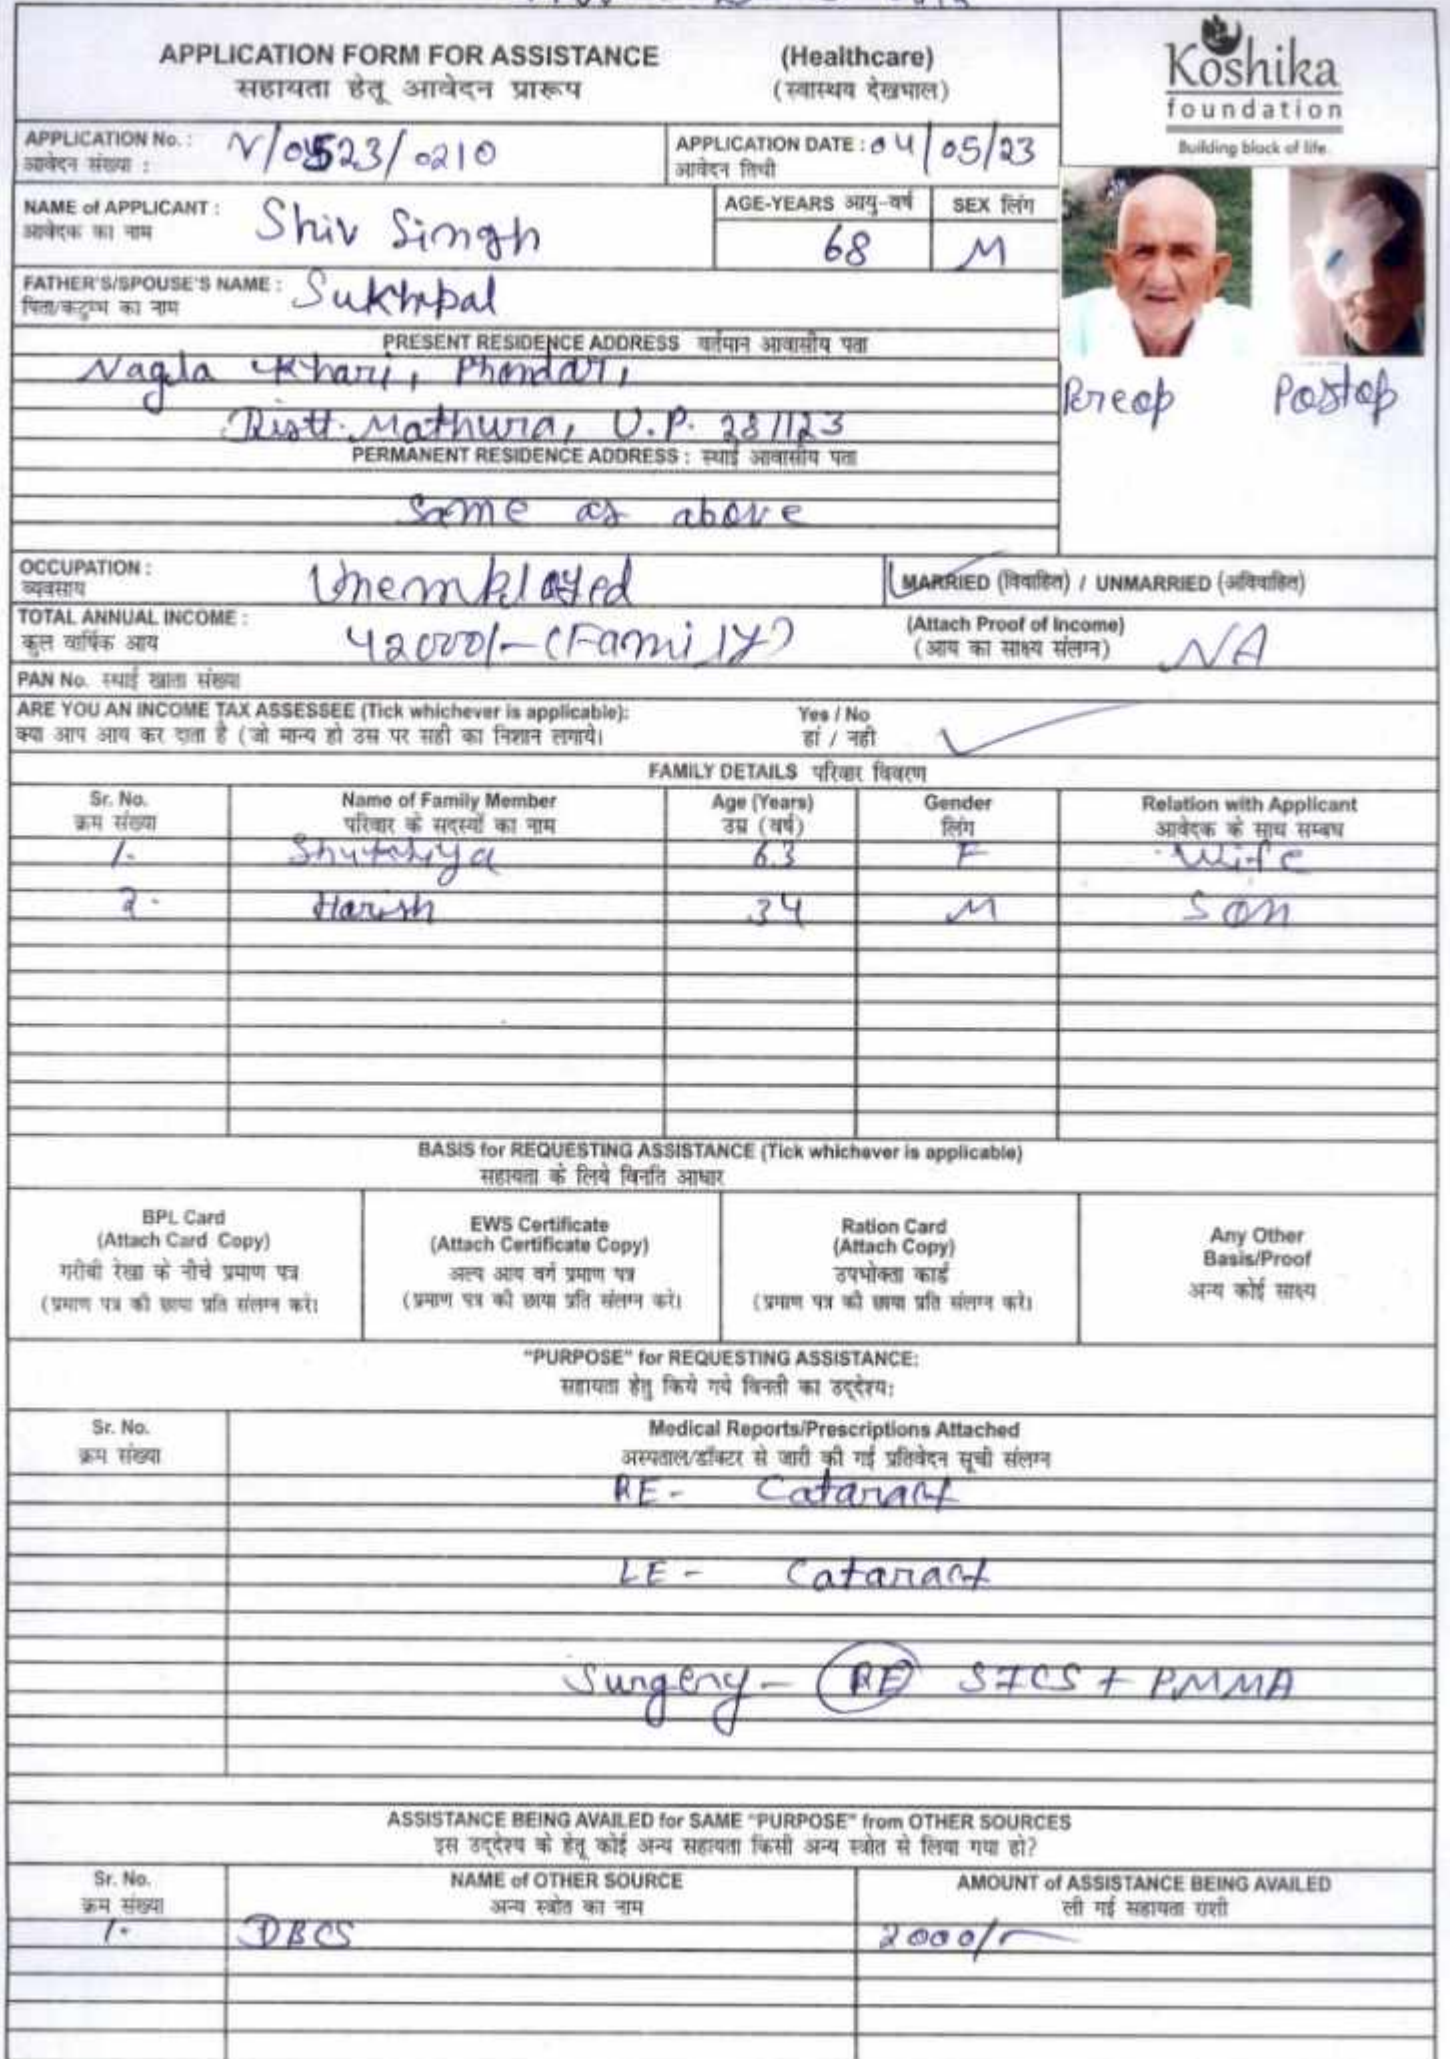 APPLICATION FORM FOR ASSISTANCE (Healthcare)
सहायता हेतू आवेदन प्रारूप (स्वास्थय देखभाल)
Koshika
foundation
Building block of life.
APPLICATION No. : N/0523/0210
आवेदन संख्या :
APPLICATION DATE : 04/05/23
आवेदन तिथी
NAME of APPLICANT : Shiv Singh
आवेदक का नाम
AGE-YEARS आयु-वर्ष 68
SEX लिंग M
FATHER'S/SPOUSE'S NAME : Sukhpal
पिता/कटुम्भ का नाम
PRESENT RESIDENCE ADDRESS वर्तमान आवासीय पता
Nagla Khari, Phondar,
Distt. Mathura, U.P. 281123
Preop Postop
PERMANENT RESIDENCE ADDRESS : स्थाई आवासीय पता
Same as above
OCCUPATION : Unemployed
व्यवसाय
MARRIED (विवाहित) / UNMARRIED (अविवाहित)
TOTAL ANNUAL INCOME : 42000/- (Family)
कुल वार्षिक आय
(Attach Proof of Income) NA
(आय का साक्ष्य संलग्न)
PAN No. स्थाई खाता संख्या
ARE YOU AN INCOME TAX ASSESSEE (Tick whichever is applicable): Yes / No
क्या आप आय कर दाता है (जो मान्य हो उस पर सही का निशान लगाये। हां / नही
FAMILY DETAILS परिवार विवरण
Sr. No. Name of Family Member Age (Years) Gender Relation with Applicant
क्रम संख्या परिवार के सदस्यों का नाम उम्र (वर्ष) लिंग आवेदक के साथ सम्बध
1. 63 F Wife
2. Harish 34 M Son
BASIS for REQUESTING ASSISTANCE (Tick whichever is applicable)
सहायता के लिये विनति आधार
BPL Card
(Attach Card Copy)
गरीबी रेखा के नीचे प्रमाण पत्र
(प्रमाण पत्र की छाया प्रति संलग्न करे।
EWS Certificate
(Attach Certificate Copy)
अल्प आय वर्ग प्रमाण पत्र
(प्रमाण पत्र की छाया प्रति संलग्न करे।
Ration Card
(Attach Copy)
उपभोक्ता कार्ड
(प्रमाण पत्र की छाया प्रति संलग्न करे।
Any Other
Basis/Proof
अन्य कोई साक्ष्य
"PURPOSE" for REQUESTING ASSISTANCE:
सहायता हेतु किये गये विनती का उद्देश्य:
Sr. No. Medical Reports/Prescriptions Attached
क्रम संख्या अस्पताल/डॉक्टर से जारी की गई प्रतिवेदन सूची संलग्न
RE - Cataract
LE - Cataract
Surgery - RE SICS + PMMA
ASSISTANCE BEING AVAILED for SAME "PURPOSE" from OTHER SOURCES
इस उद्देश्य के हेतू कोई अन्य सहायता किसी अन्य स्त्रोत से लिया गया हो?
Sr. No. NAME of OTHER SOURCE AMOUNT of ASSISTANCE BEING AVAILED
क्रम संख्या अन्य स्त्रोत का नाम ली गई सहायता राशी
1. DBCS 2000/-